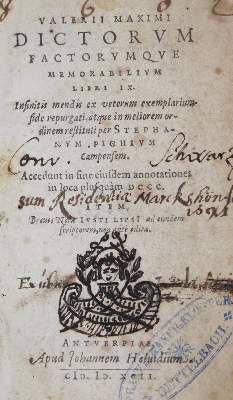 VALERII MAXIMI
DICTORVM
FACTORVMQVE
MEMORABILIVM
LIBRI IX.
Infinitis mendis ex veterum exemplarium
fide repurgati, atque in meliorem or-
dinem restituti per STEPHA-
NVM PIGHIVM
Campensem.
Conv. Schwarz
Accedunt in fine eiusdem annotationes
in loca plusquam DCCC.
sum Residentiæ
ITEM,
Breves Notæ IVSTI LIPSI ad eundem
scriptorem, non ante editæ.
ANTVERPIAE,
Apud Iohannem
CIↃ. IↃ. XCII.
DETTELBACH